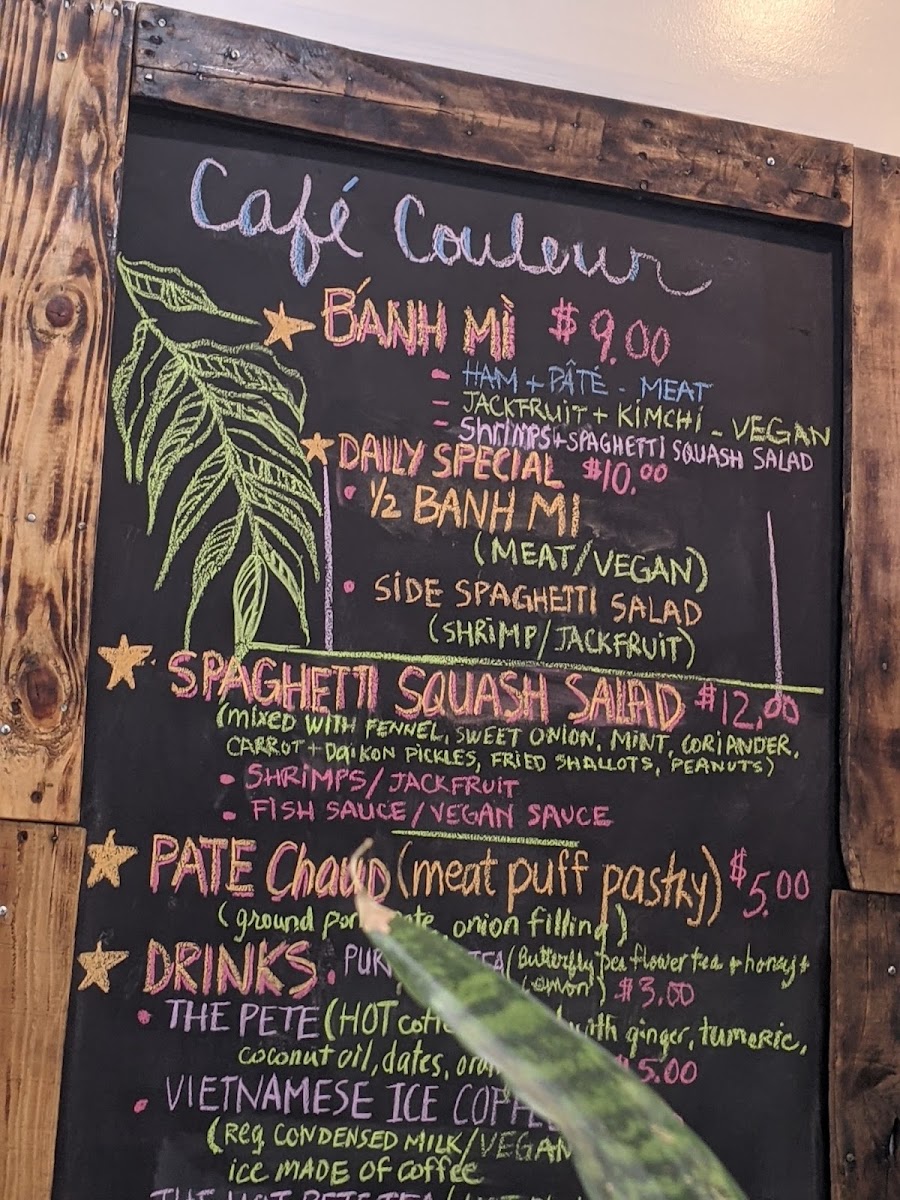 Café Couleur
BÁNH MÌ $9.00
- HAM + PÂTÉ - MEAT
- JACKFRUIT + KIMCHI - VEGAN
- Shrimps + SPAGHETTI SQUASH SALAD
DAILY SPECIAL $10.00
• 1/2 BANH MI
(MEAT/VEGAN)
• SIDE SPAGHETTI SALAD
(SHRIMP/JACKFRUIT)
SPAGHETTI SQUASH SALAD $12.00
(mixed WITH FENNEL, SWEET ONION, MINT, CORIANDER,
CARROT + DaiKON PICKLES, FRIED SHALLOTS, PEANUTS)
• SHRIMPS/JACKFRUIT
• FISH SAUCE/VEGAN SAUCE
PATE Chaud (meat puff pastry) $5.00
(ground onion filling)
DRINKS • TEA (Butterfly pea flower tea + honey +
lemon) $3.00
• THE PETE (HOT with ginger, tumeric,
coconut oil, dates, $5.00
• VIETNAMESE ICE
(Reg CONDENSED MILK/VEGAN
ice MADE OF COFFEE